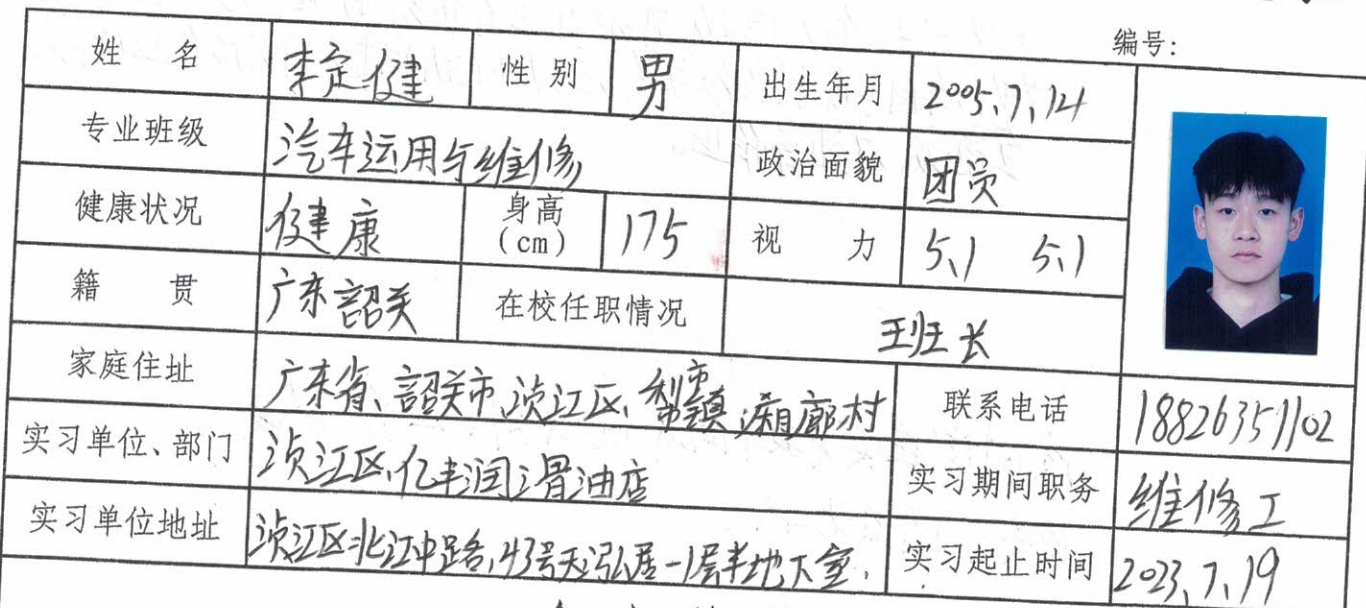 编号:
姓 名 李定健 性别 男 出生年月 2005.7.14
专业班级 汽车运用与维修 政治面貌 团员
健康状况 健康 身高(cm) 175 视 力 5.1 5.1
籍 贯 广东韶关 在校任职情况 班长
家庭住址 广东省、韶关市、浈江区、犁市镇、厢廊村 联系电话 18826351102
实习单位、部门 浈江区、亿丰润滑油店 实习期间职务 维修工
实习单位地址 浈江区北江中路,43号天泓居一层半地下室, 实习起止时间 2023.7.19